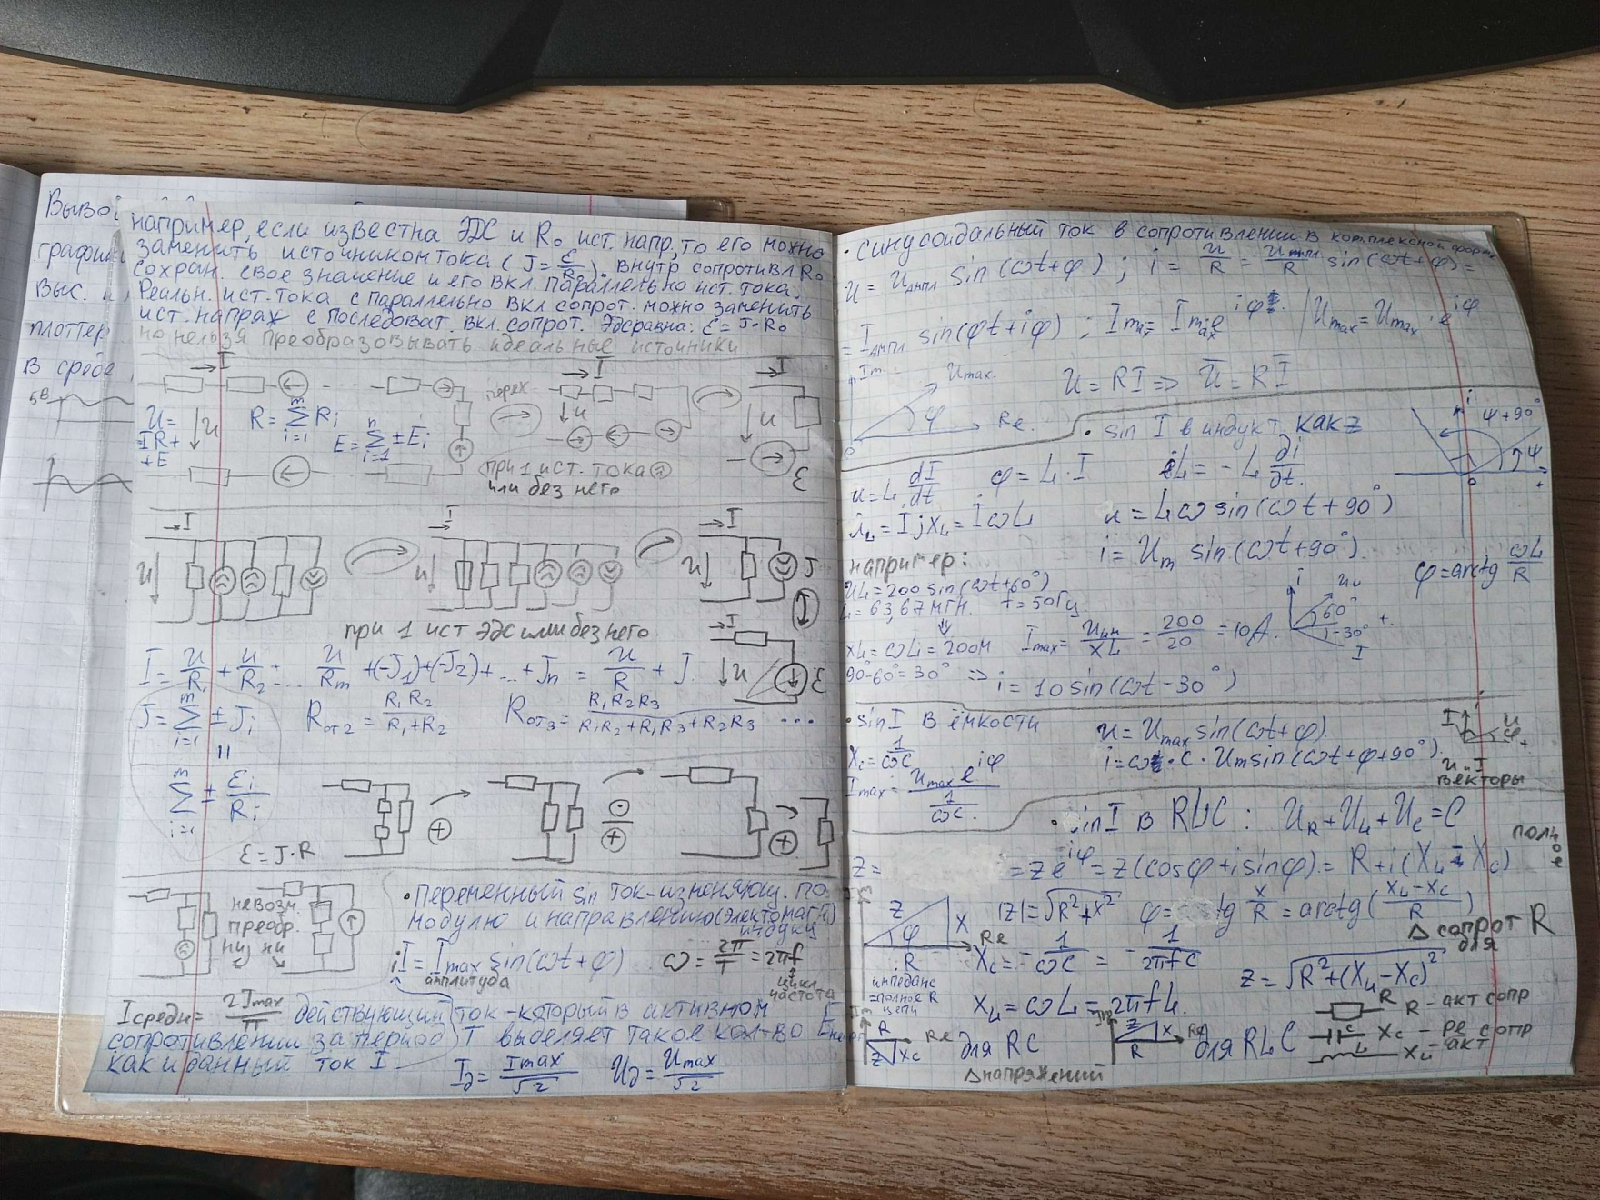 Вывод
график
выс.
плоттер
в среде
например, если известна ЭДС и R₀ ист. напр, то его можно
заменить источником тока (J = ε/R₀). внутр сопротивл R₀
сохран. свое значение и его вкл. параллельно ист. тока.
Реальн. ист. тока с параллельно вкл сопрот. можно заменить
ист. напряж с последоват. вкл. сопрот. Эдс равна: ε = J·R₀
но нельзя преобразовывать идеальные источники
I
I
I
перех
U = IR + + E
U
R = Σ Ri
i=1
m
E = Σ ± Ei
i=1
n
U
U
ε
при 1 ист. тока
или без него
I
i
I
U
U
U
J
при 1 ист ЭДС или без него
I
U
ε
I = U/R₁ + U/R₂ + ... U/Rm + (-J₁) + (-J₂) + ... + Jn = U/R + J
J = Σ ± Ji
i=1
m
Rот2 = R₁R₂/(R₁+R₂)
Rот3 = R₁R₂R₃/(R₁R₂+R₁R₃+R₂R₃) ...
Σ ± εi/Ri
i=1
m
ε = J·R
невозм.
преобр.
ни ни
• Переменный sin ток - изменяющ. по
модулю и направлению (электомагн)
индукц
iI = Imax sin(ωt + φ)
амплитуда
ω = 2π/T = 2πf
цикл
частота
Iсредн = 2Imax/π
действующий ток - который в активном
сопротивлении за период T выделяет такое кол-во Eнерг
как и данный ток I
Iд = Imax/√2
Uд = Umax/√2
• синусоидальный ток в сопротивлении в комплексной форм
U = Uампл sin(ωt + φ); i = U/R = Uмпл/R sin(ωt + φ) =
= Iампл sin(φt + iφ);
Umax = Umax · e^iφ
Im
Umax
φ
Re
0
U = RI => U̅ = RI̅
• sin I в индукт как z
i
ψ + 90°
ψ
0
+
u = L dI/dt
φ = L · I
εL = -L ∂i/∂t
u = Lω sin(ωt + 90°)
i = Um sin(ωt + 90°)
φ = arctg ωL/R
например:
UL = 200 sin(ωt + 60°)
L = 63,67 мГн. f = 50 Гц
XL = ωL = 20 Ом
Imax = ULм/XL = 200/20 = 10 А.
i
60°
-30°
+
I
90° - 60° = 30° => i = 10 sin(ωt - 30°)
• sin I в ёмкости
u = Umax sin(ωt + φ)
Xc = 1/ωC
i = ω · C · Um sin(ωt + φ + 90°)
Imax = Umax e^iφ / (1/ωC)
i
I
U
φ
+
векторы
• sin I в RLC: UR + UL + Uc = C
z =
= z e^iφ = z(cosφ + i sinφ) = R + i(XL - Xc)
полное
z
φ
R
X
Re
|z| = √R² + X²
φ = tg X/R = arctg(XL - Xc / R)
Δ сопрот R
для
импеданс
= полное R
цепи
Xc = -1/ωC = -1/2πfC
z = √R² + (XL - Xc)²
XL = ωL = 2πfL
R
R - акт сопр
C
Xc - ре сопр
L
XL - акт
R
Re
z
Xc
для RC
z
X
Re
R
для RLC
Δ напряжений